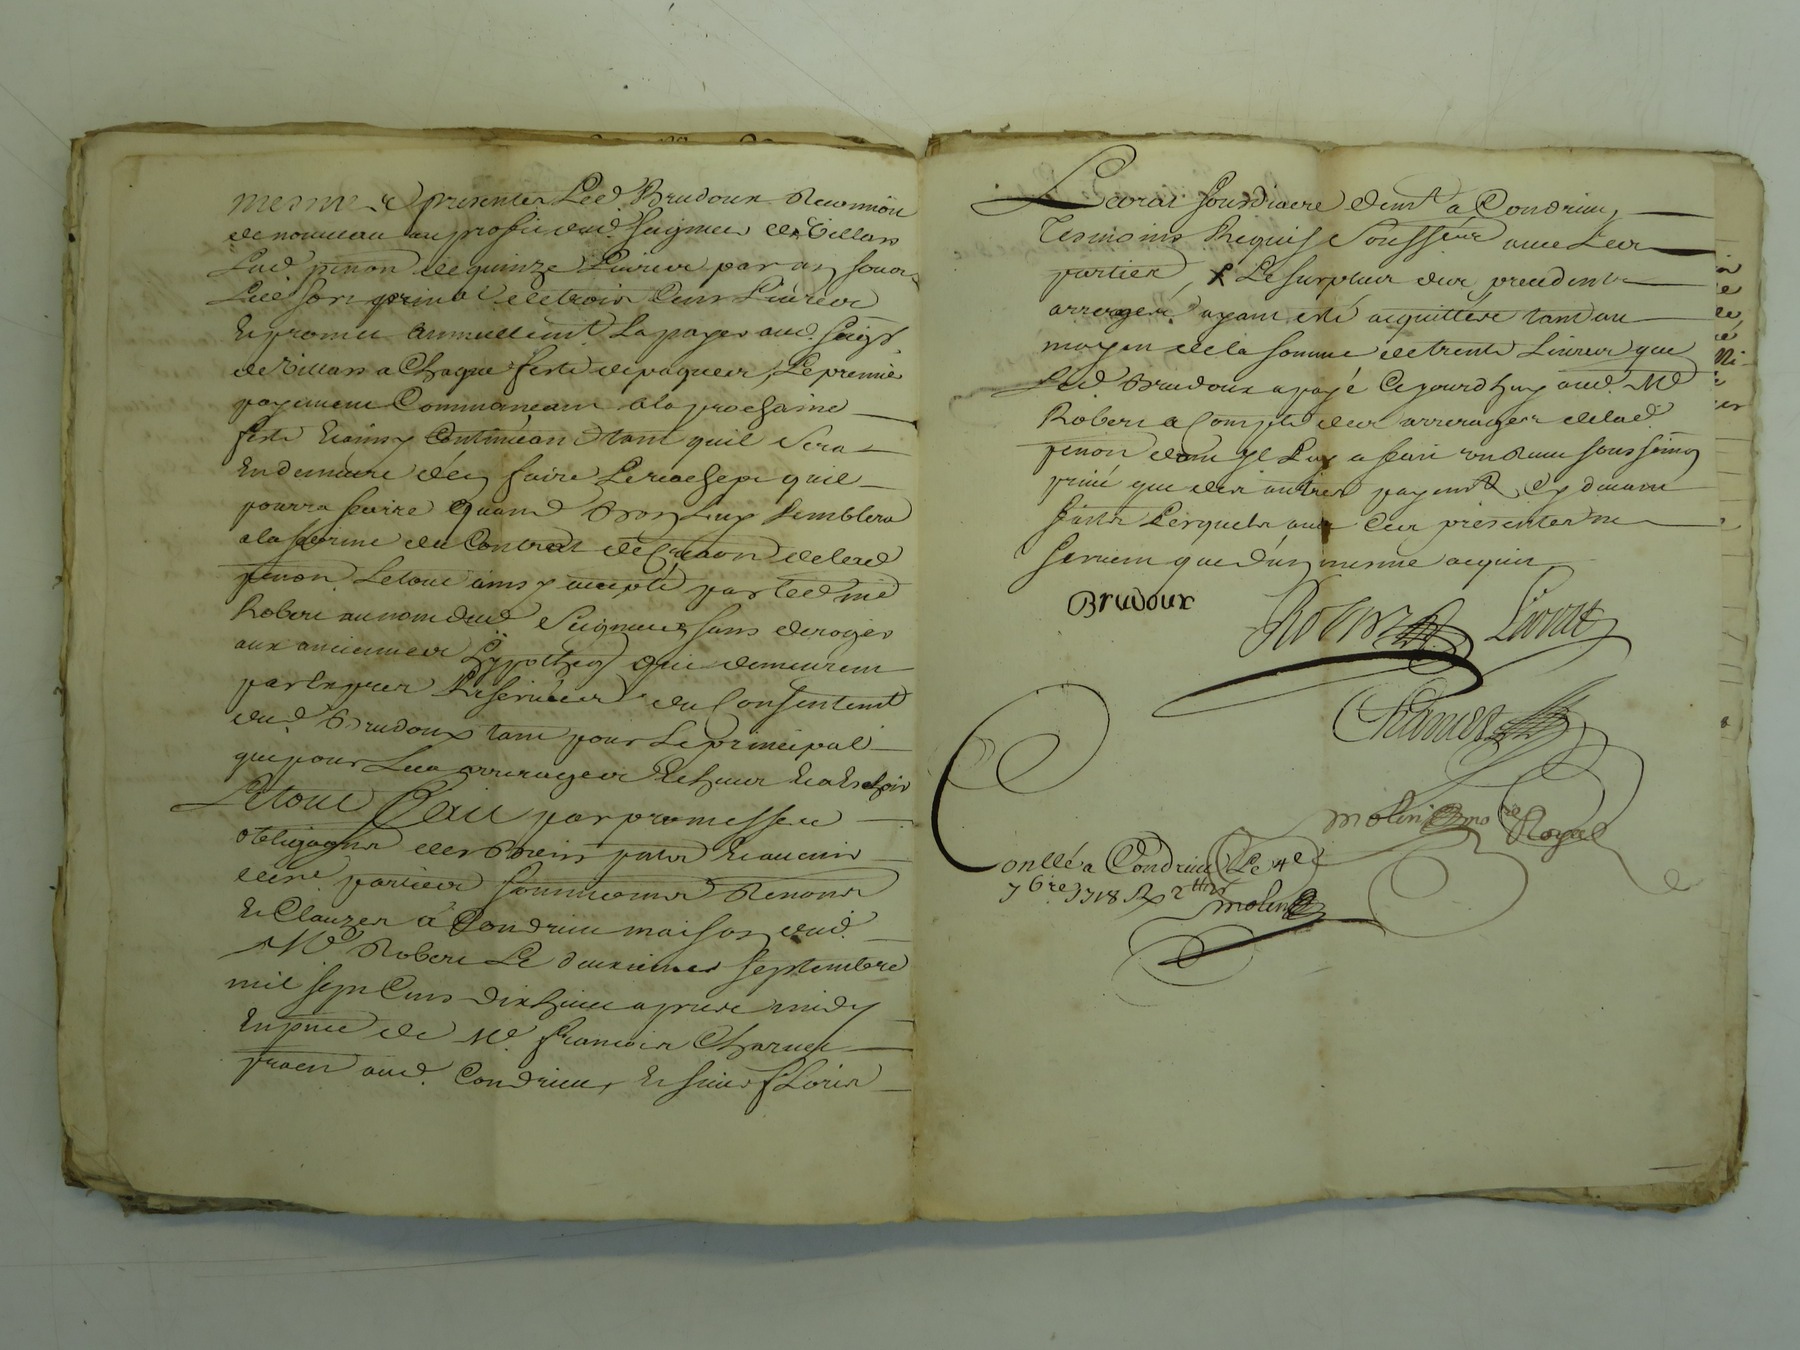 mesmes presentes Led. Brudoux Reconnoît
de nouveau au proffit dud. Seigneur de Villars
Lad. pen͞on de quinze Livres par an sous
Led. sort prin͞al de trois Cens Livres
Et promet annuellem͞t La payer aud. Seig͞r
de Villars a Chaque feste de paques, Le premier
payement Commançant a la prochaine
feste Et ainsy Continuant tant quil Sera
En demeure d'en faire Le rachept quil
pourra faire Quand Bon Luy Semblera
a la forme du Contrat de Crea͞on de lad.
pen͞on Le tout ainsy accepté par Led. Me
Robert au nom dud. Seigneur sans deroger
aux anciennes hypotheq. qui demeurent
par Exprès Reservées du Consentem͞t
dud. Brudoux tant pour Le principal
que pour Les arrerages Echeus Et a Eschoir
Le tout Fait par promesses
obliga͞ons des Biens
des parties soumissions Renon͞ons
Et Clauzes a Condrieu maison dud.
Me Robert Le deuxieme Septembre
mil Sept Cens dix huit après midy
En p͞nce de Me François Charvet
praen aud. Condrieu, Et Louis
Livrat Sousdiacre dem͞t a Condrieu
Tesmoins Requis Soussignés avec Les
parties, Le surplus des precedents
arrerages ayant esté acquittés tant au
moyen de la somme de trente Livres que
Led. Brudoux a payé Cejourdhuy aud. Me
Robert a Compte des arrerages de lad.
pen͞on dont il Luy a fait un Receu sous seing
privé que des autres payem͞ts Cy devant
faits Lesquels avec Ces presentes ne
serviront que d'un mesme acquit
Brudoux
Robert Livrat
Charvet
Molin no͞re Royal
Conllé a Condrieu Le 4e
7bre 1718 Rx 2
Molin